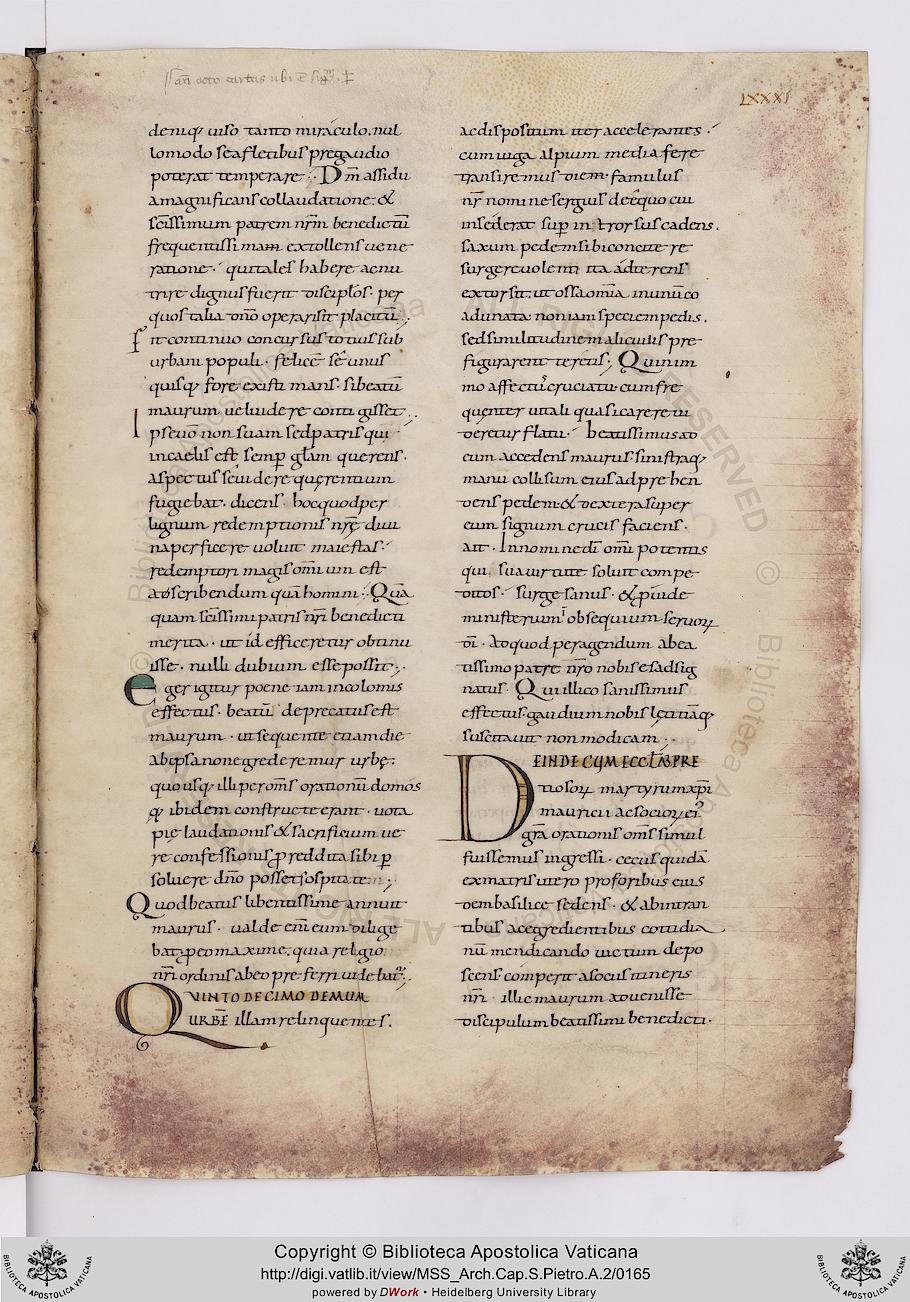 LXXXI
deniq; uiso tanto miraculo. nul
lomodo se a fletibus pre gaudio
poterat temperare:. Dm̄ assidu
a magnificans collaudatione. &
sc̄issimum patrem nr̄m benedictū
frequentissimam extollens uene
ratione. qui tales habere ac nu
trire dignus fuerit disciplos. per
quos talia dn̄o operari sit placitū;.
Fit continuo concursus totius sub
urbani populi. felicē sē unus
quisq; fore existimans. si beatū
maurum uel uidere contigisset..
Ipse uero non suam sed patris qui
in caelis est semp̄ gl̄am querens.
aspectus se uidere quęrentium
fugiebat. dicens. hoc quod per
lignum redemptionis nr̄ę diui
na perficere uoluit maiestas.
redemptori magis omium est
adscribendum quā homini:. Quā
quam sc̄issimi patris nr̄i benedicti
merita. ut id efficeretur obtinu
isse. nulli dubium esse possit;.
Eger igitur poene iam incolomis
effectus. beatū deprecatus est
maurum. ut sequente etiam die
ab ipsa non egrederemur urbę.
quousq; illi per om̄s orationū domos
q̨ ibidem constructe erant. uota
pię laudationis & sacrificium ue
re confessionis p̱ reddita sibi p̱
soluere dn̄o posset sospitate;
Quod beatus libentissime annuit
maurus. ualde eni eum dilige
bat. p̱eo maxime. quia religio
nr̄i ordinis ab eo preferri uidebat̄..
QUINTO DECIMO DEMUM
URBĒ illam relinquentes.
ac dispositum iter accelerantes.
cum iuga alpium media fere
transiremus diem. famulus
nr̄ nomine sergius de equo cui
insederat sup̄ introrsus cadens.
saxum pedem sibi concitte re
surgere uolenti ita adterens
extorsit. ut ossa omīa in unū co
adunata. non iam speciem pedis.
sed similitudinem aliculis pre
figurarent teretis; Qui nim
mo affectus cruciatu. cum fre
quenter uitali quasi carere ui
deretur flatu. beatissimus ad
eum accedens maurus. sinistraq;
manu collisum eius adprehen
dens pedem. & dextera super
eum signum crucis faciens.
ait. In nomine dī omīpotentis
qui sua uirtute soluit compe
ditos. surge sanus. & p̱inde
ministerum obsequium seruoꝝ
dī. ad quod peragendum a bea
tissimo patre nr̄o nobis es adsig
natus. Qui illico sanissimus
effectus. gaudium nobis lętitiāq;
suscitauit non modicam;.
DEINDE CUM ECCL̄AM PRE
tiosoꝝ martyrum xp̄i
mauricii ac socioꝝ ei'
gr̄a orationis om̄s simul
fuissemus ingressi. cecus quidā
ex matris utero pro foribus eius
dem basilice sedens. & ab intran
tibus ac egredientibus cottidia
nū mendicando uictum depo
scens. comperit a sociis itineris
nr̄i. illic maurum aduenisse
discipulum beatissimi benedicti.
Copyright © Biblioteca Apostolica Vaticana
http://digi.vatlib.it/view/MSS_Arch.Cap.S.Pietro.A.2/0165
powered by DWork • Heidelberg University Library